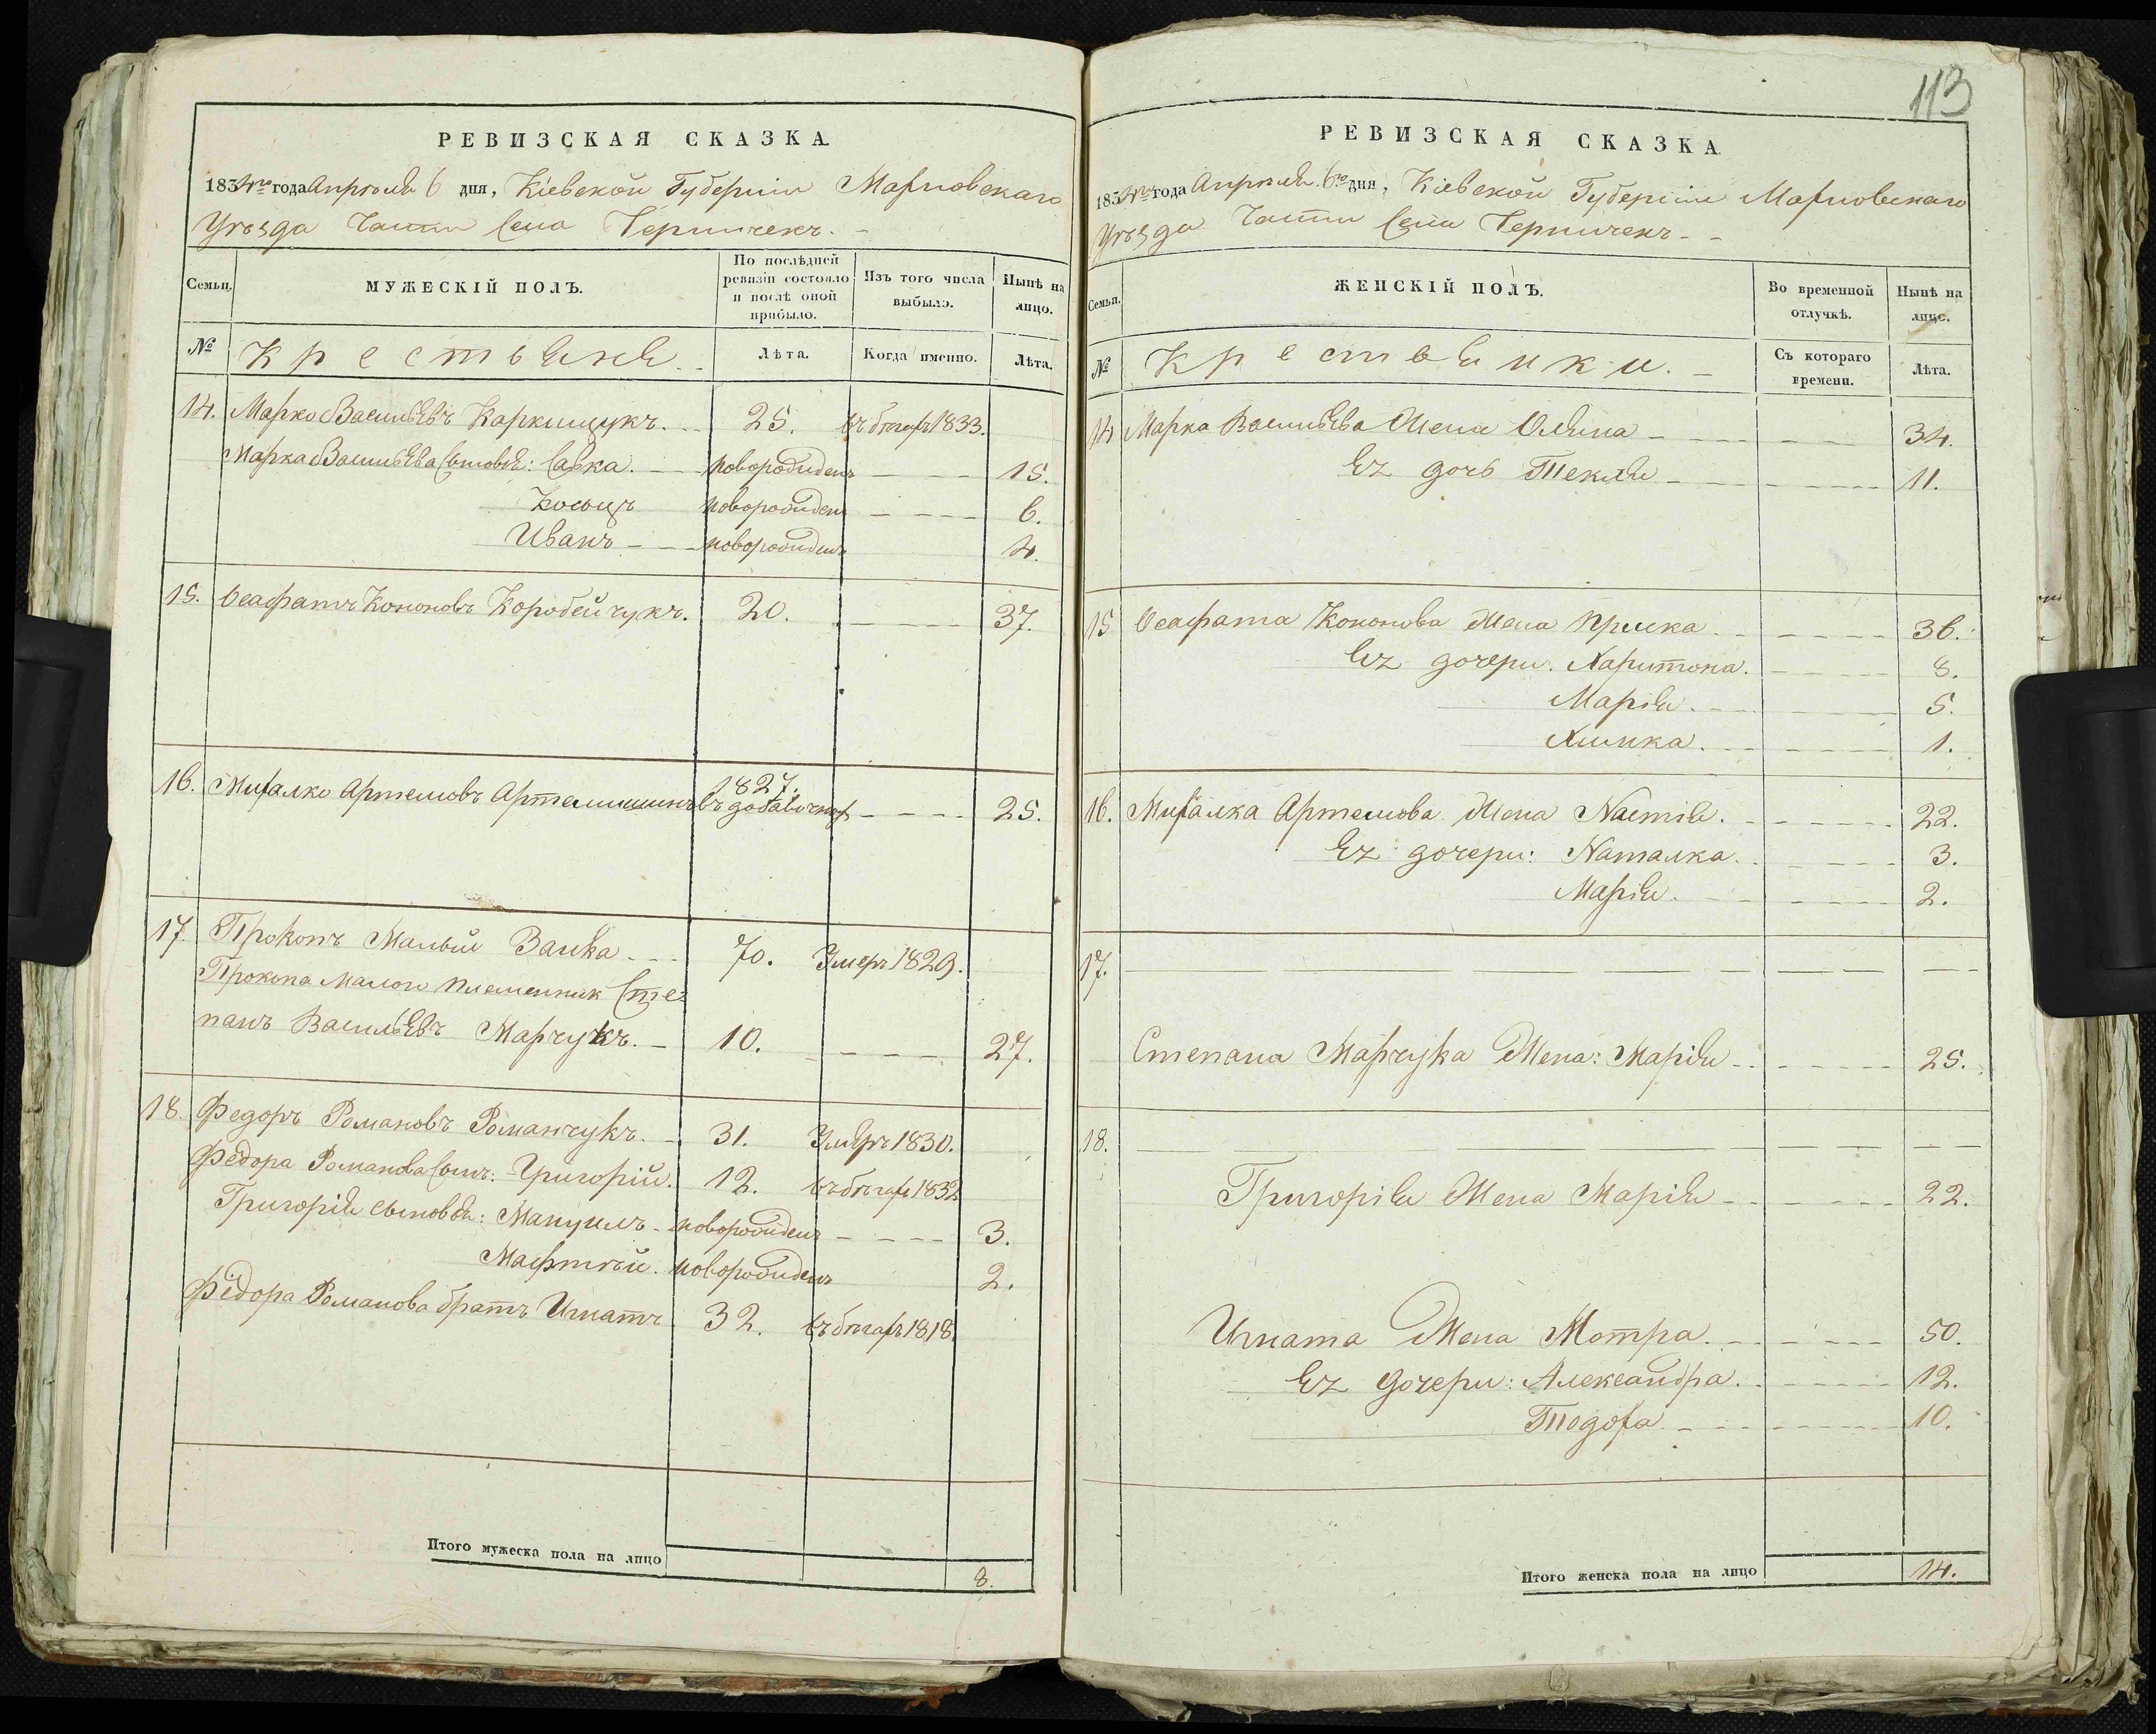 113
РЕВИЗСКАЯ СКАЗКА.
1834го года Апрѣля 6 дня, Кіевской Губерніи
Уѣзда Части Села
Семьи.
МУЖЕСКІЙ ПОЛЪ.
По послѣдней ревизіи состояло и послѣ оной прибыло.
Изъ того числа выбыло.
Нынѣ на лицо.
№
Крестьяне.
Лѣта.
Когда именно.
Лѣта.
14. Марко Васильевъ 25. въ бѣгахъ 1833.
Марка Васильева сыновья: Савка. новорожденъ 15.
новорожденъ 6.
Иванъ новорожденъ 4.
15. Осафатъ Кононовъ Коробейчукъ. 20. 37.
1827.
16. Михалко Артемовъ въ добавочной 25.
17. Прокопъ Малый Заика 70. Умеръ 1829.
Прокопа Малого племенник Сте=
панъ Васильевъ Марчукъ. 10. 27.
18. Федоръ Романовъ Романчукъ. 31. Умеръ 1830.
Федора Романова сынъ: Григорій. 12. въ бѣгахъ 1832
Григорія сыновья: Мануилъ новорожденъ 3.
Мафтѣй. новорожденъ 2.
Федора Романова братъ Игнатъ 32. въ бѣгахъ 1818.
Итого мужеска пола на лицо 8.
РЕВИЗСКАЯ СКАЗКА.
1834го года Апрѣля 6го дня, Кіевской Губерніи
Уѣзда Части Села
Семьи.
ЖЕНСКІЙ ПОЛЪ.
Во временной отлучкѣ.
Нынѣ на лицо.
№
Крестьянки.
Съ котораго времени.
Лѣта.
14 Марка Васильева Жена Олена 34.
Ея дочь Текля 11.
15 Осафата Кононова Жена Приска 36.
Ея дочери: Харитона. 8.
Марія. 5.
Химка. 1.
16. Михалка Артемова Жена Настія. 22.
Ея дочери: Наталка. 3.
Марія. 2.
17.
Степана Марчука Жена: Марія 25.
18.
Григорія Жена Марія 22.
Игната Жена Мотра. 50.
Ея дочери: Александра. 12.
Тодора 10.
Итого женска пола на лицо 14.